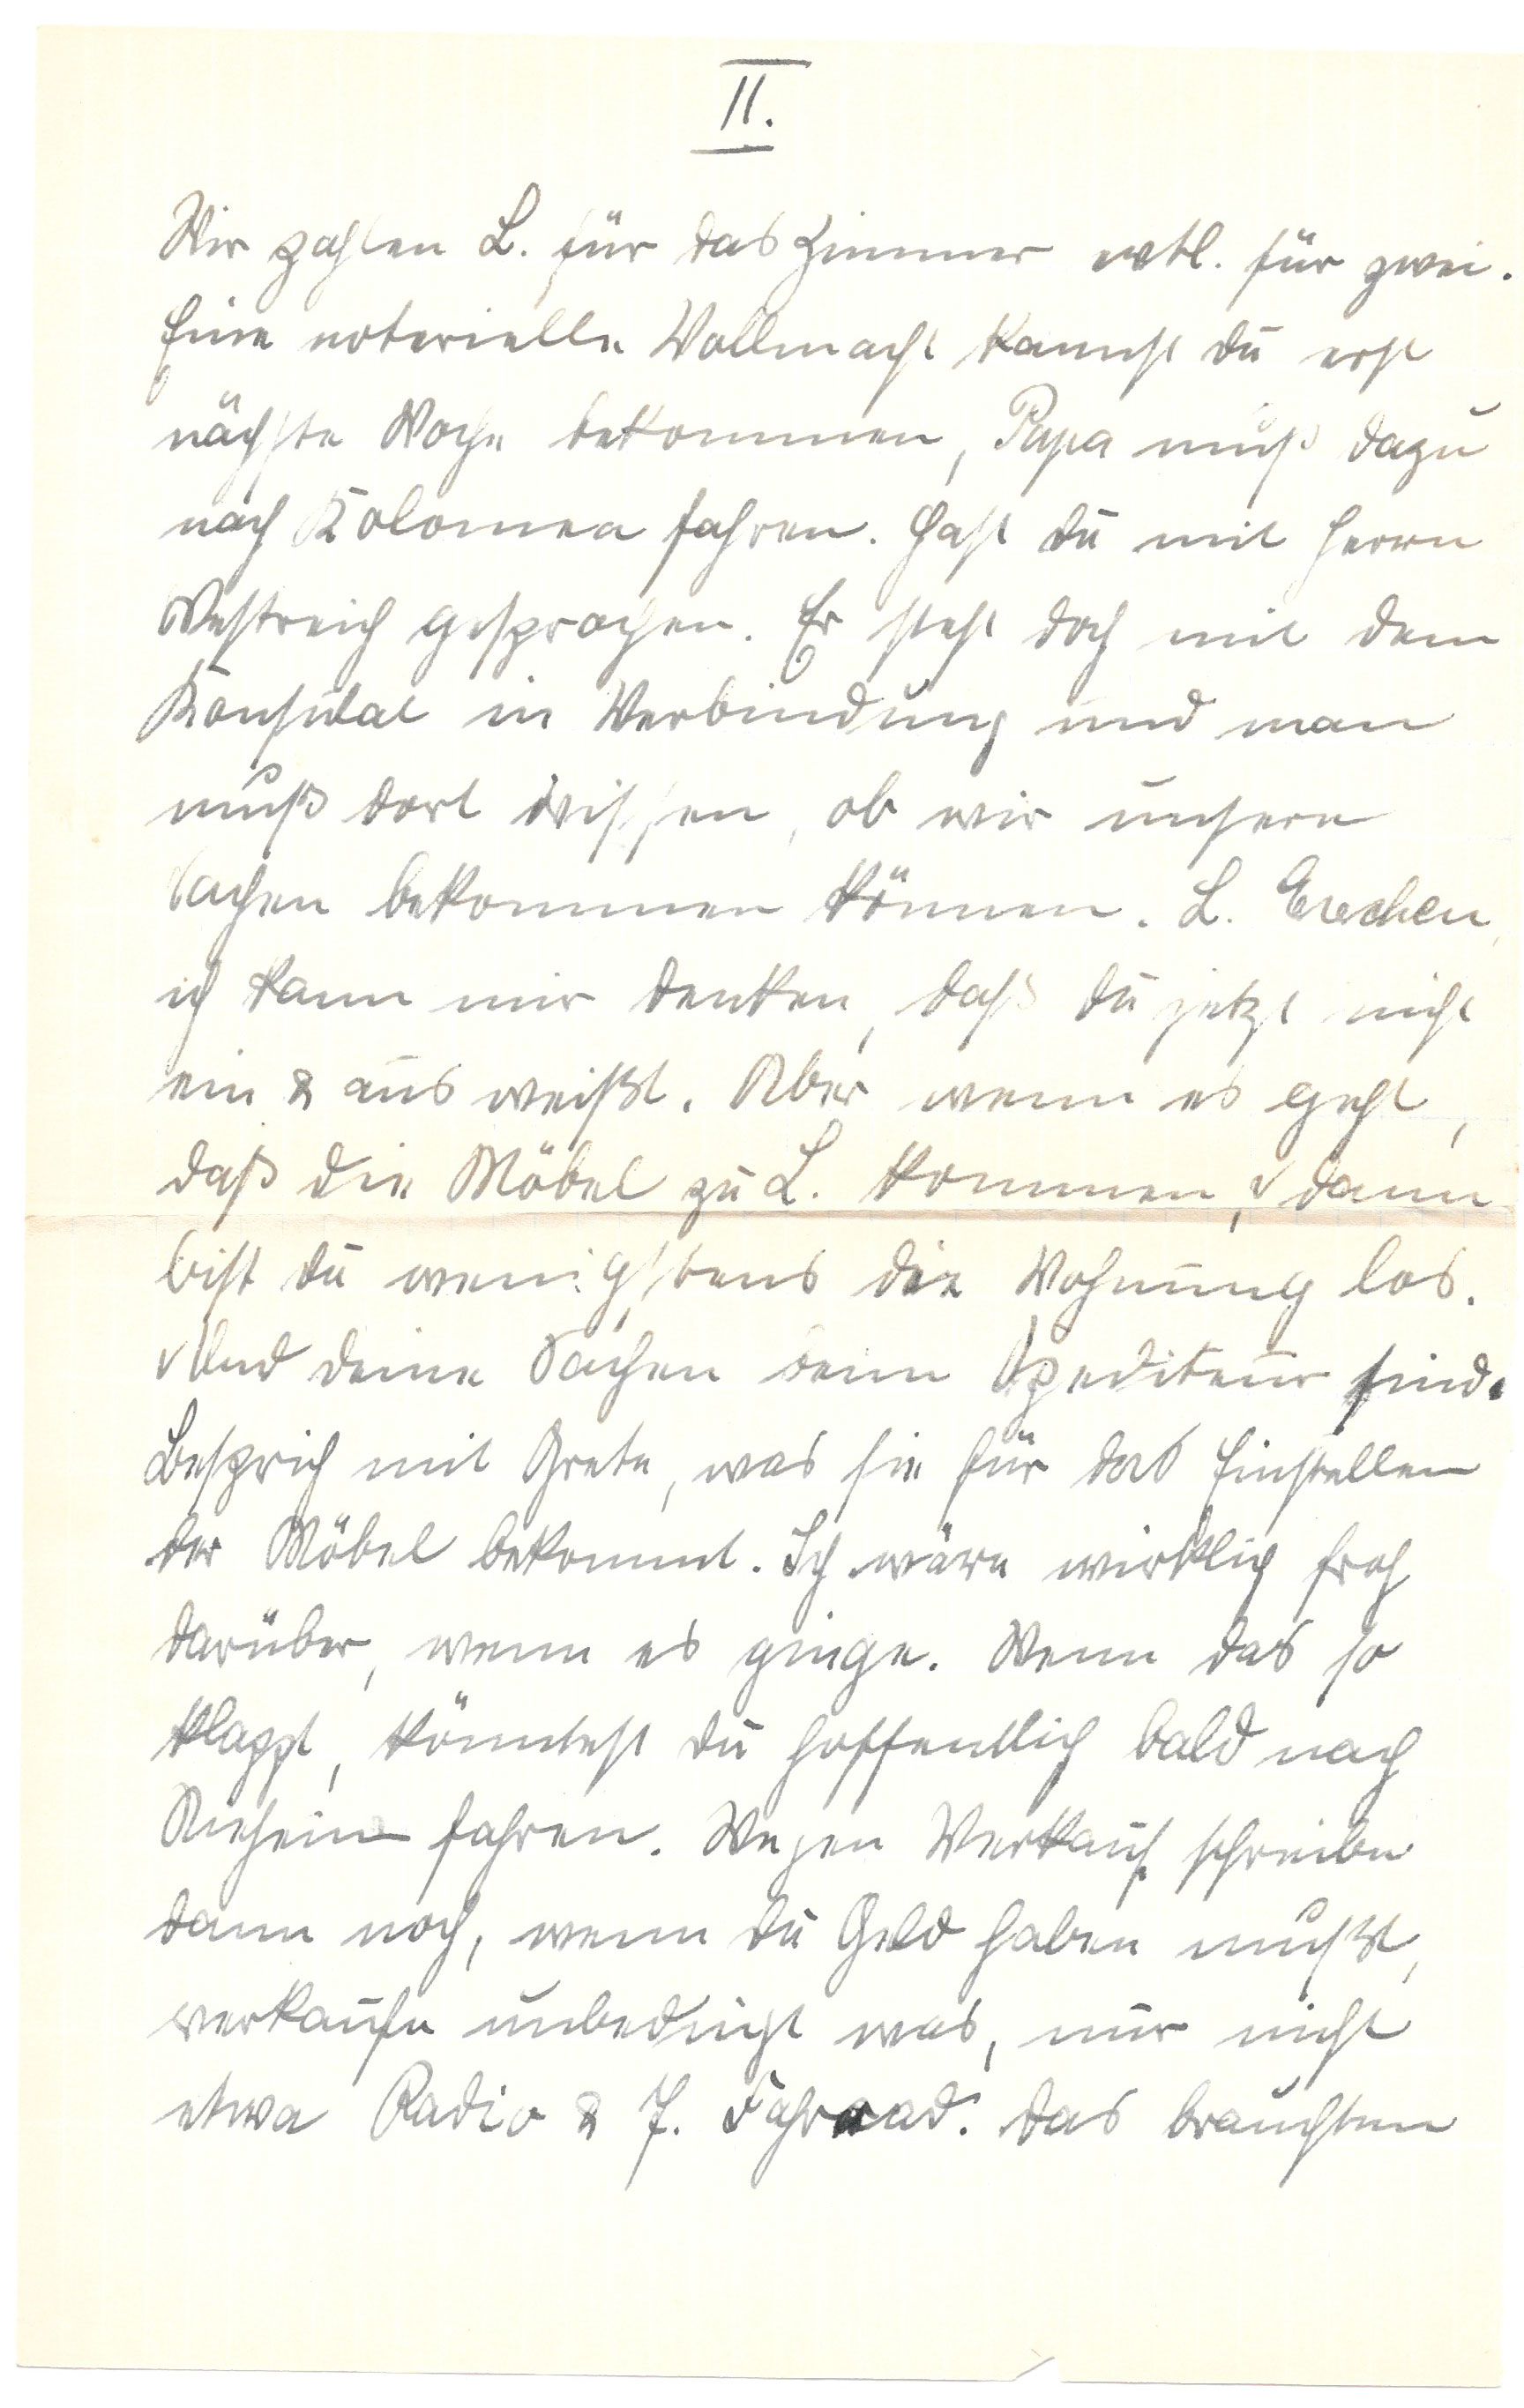 II.
Wir zahlen L. für das Zimmer evtl. für zwei.
Eine notarielle Vollmacht kannst du erst
nächste Woche bekommen, Papa muß dazu
nach Kolomea fahren. Hast du mit Herrn
Westreich gesprochen. Er steht doch mit dem
Konsulat in Verbindung und man
muß dort wissen, ob wir unsere
Sachen bekommen können. L. Evechen,
ich kann mir denken, daß du jetzt nicht
ein & aus weißt. Aber wenn es geht,
daß die Möbel zu L. kommen, dann
bist du wenigstens die Wohnung los.
Und deine Sachen beim Spediteur sind.
Besprich mit Grete, was sie für das Einstellen
der Möbel bekommt. Ich wäre wirklich froh
darüber, wenn es ginge. Wenn das so
klappt, könntest du hoffentlich bald nach
fahren. Wegen Verkauf schreibe
dann noch, wenn du Geld haben mußt,
verkaufe unbedingt was, nur nicht
etwa Radio & J. Fahrrad. Das brauchten